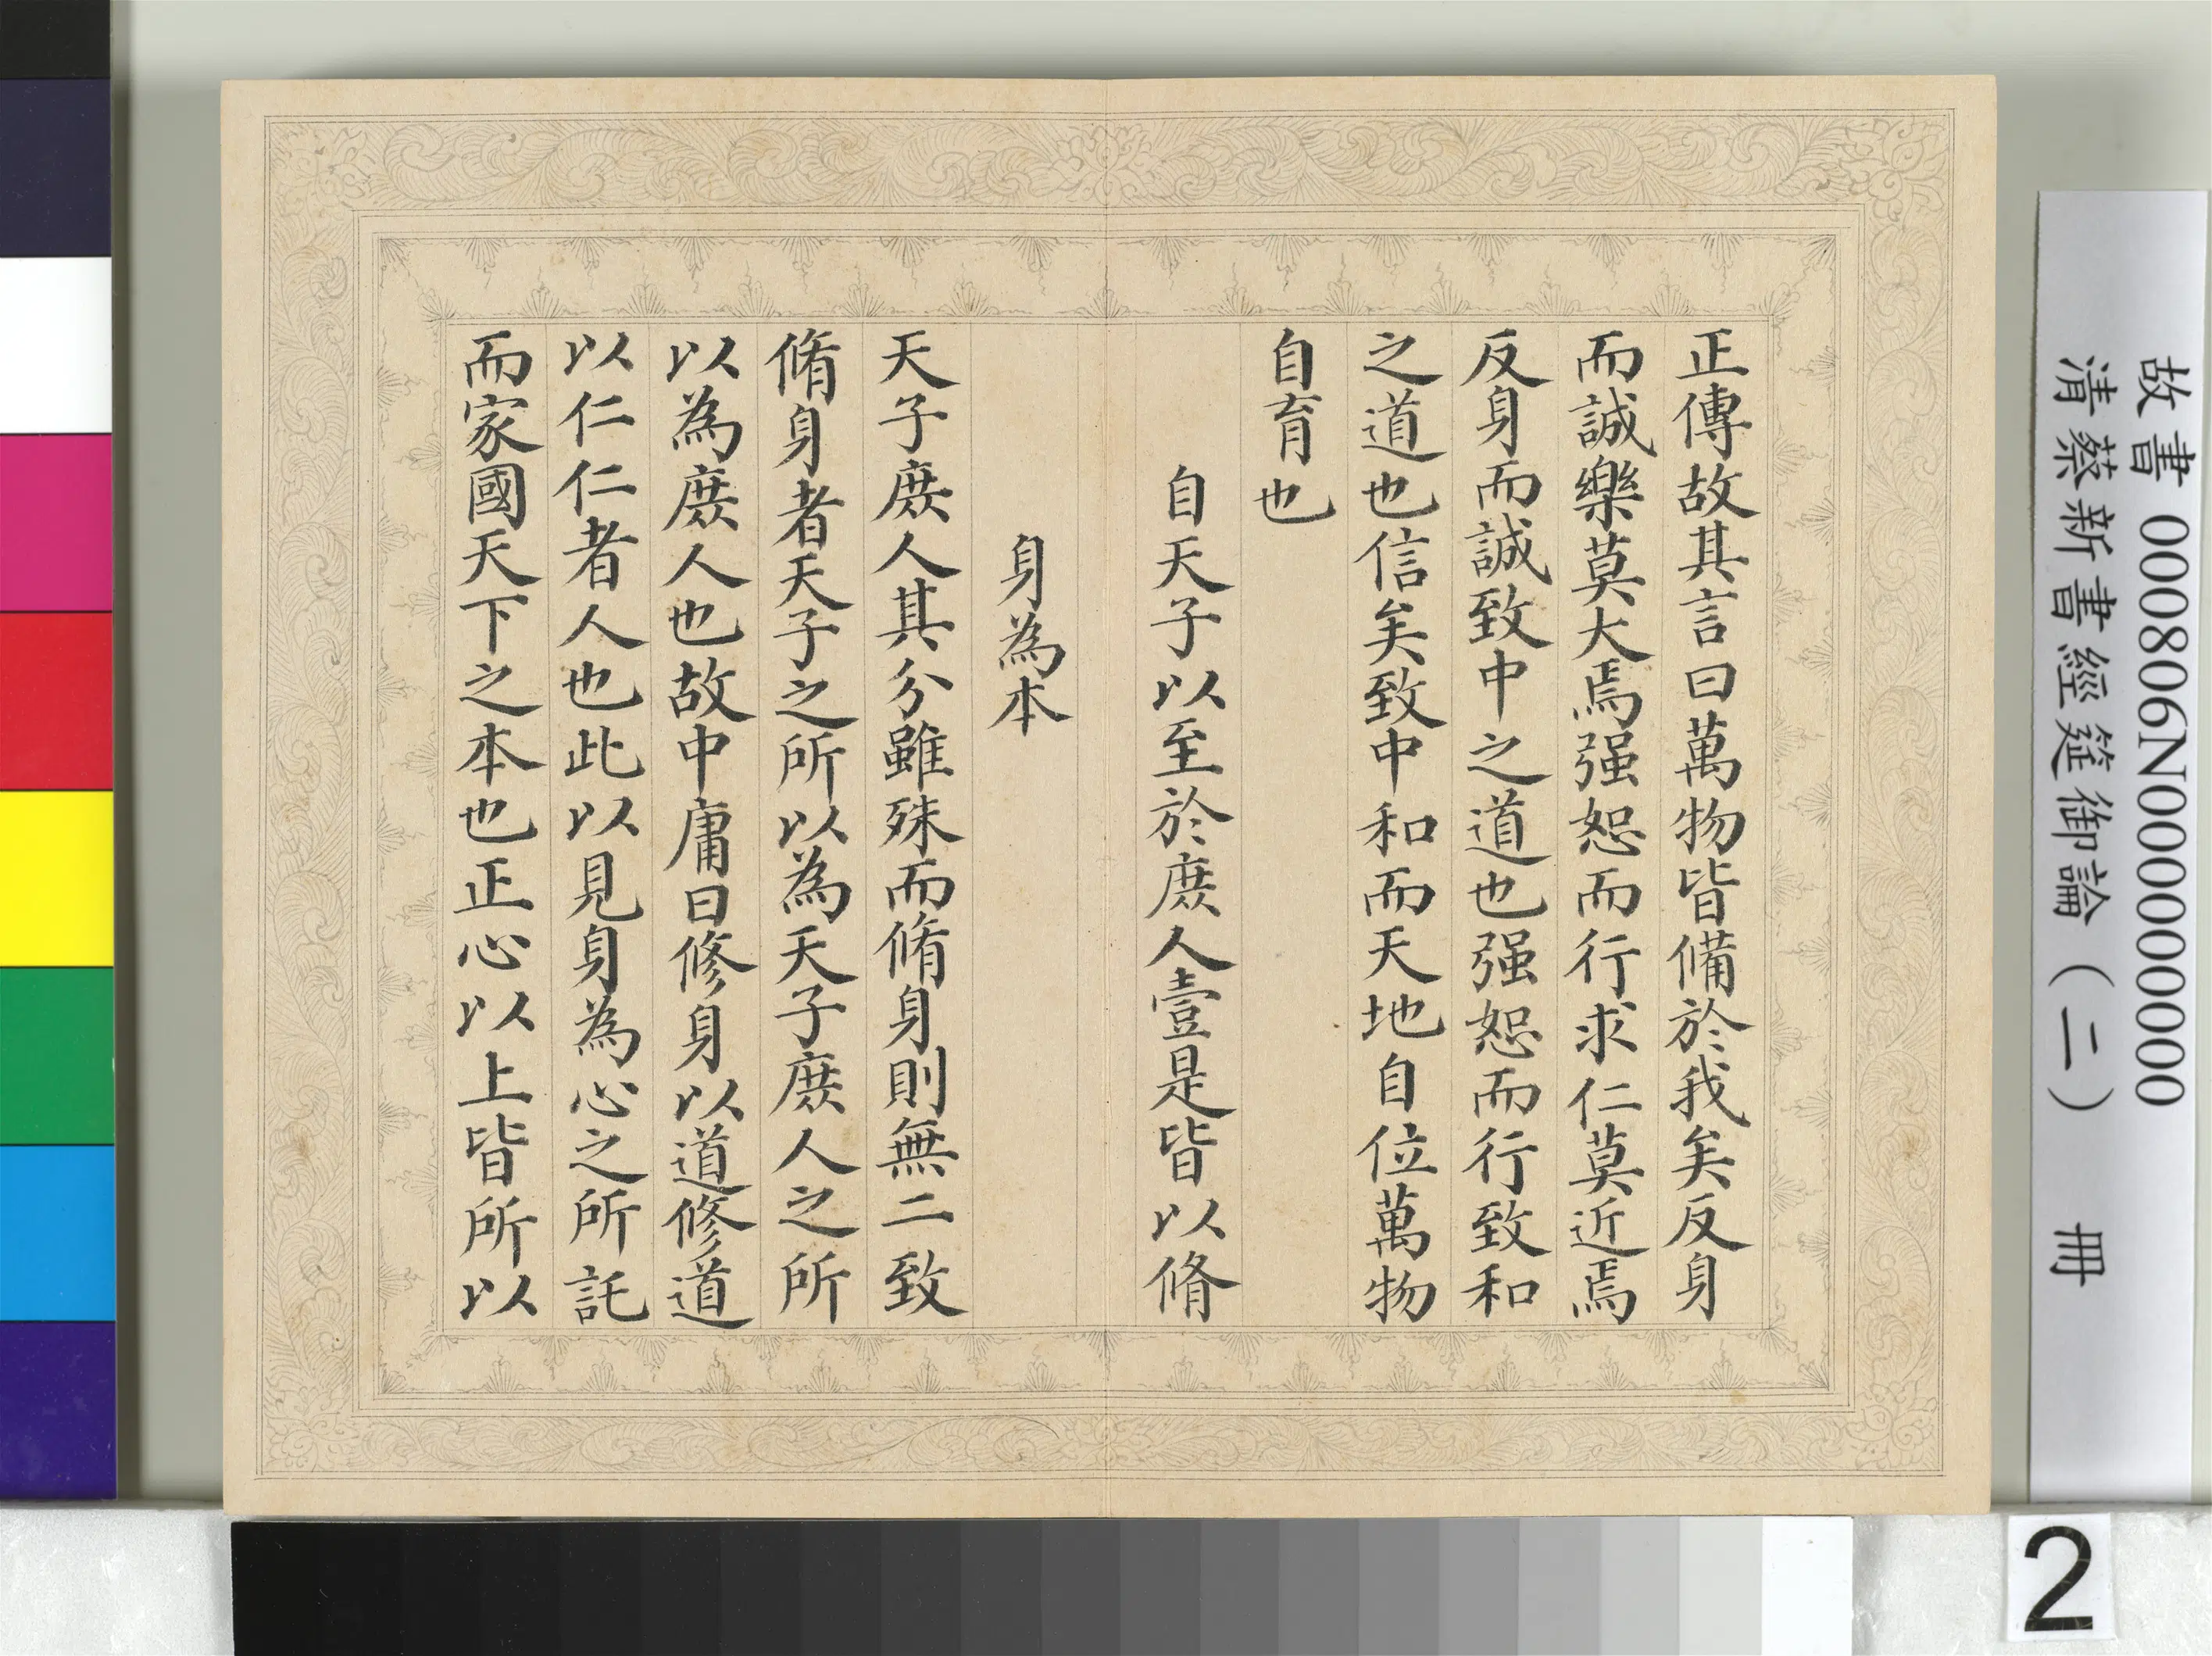 正傳故其言曰萬物皆備於我矣反身
而誠樂莫大焉强恕而行求仁莫近焉
反身而誠致中之道也强恕而行致和
之道也信矣致中和而天地自位萬物
自育也
自天子以至於庶人壹是皆以脩
身為本
天子庶人其分雖殊而脩身則無二致
脩身者天子之所以為天子庶人之所
以為庶人也故中庸曰修身以道修道
以仁仁者人也此以見身為心之所託
而家國天下之本也正心以上皆所以
故書 000806N000000000
清蔡新書經筵御論(二) 冊
2